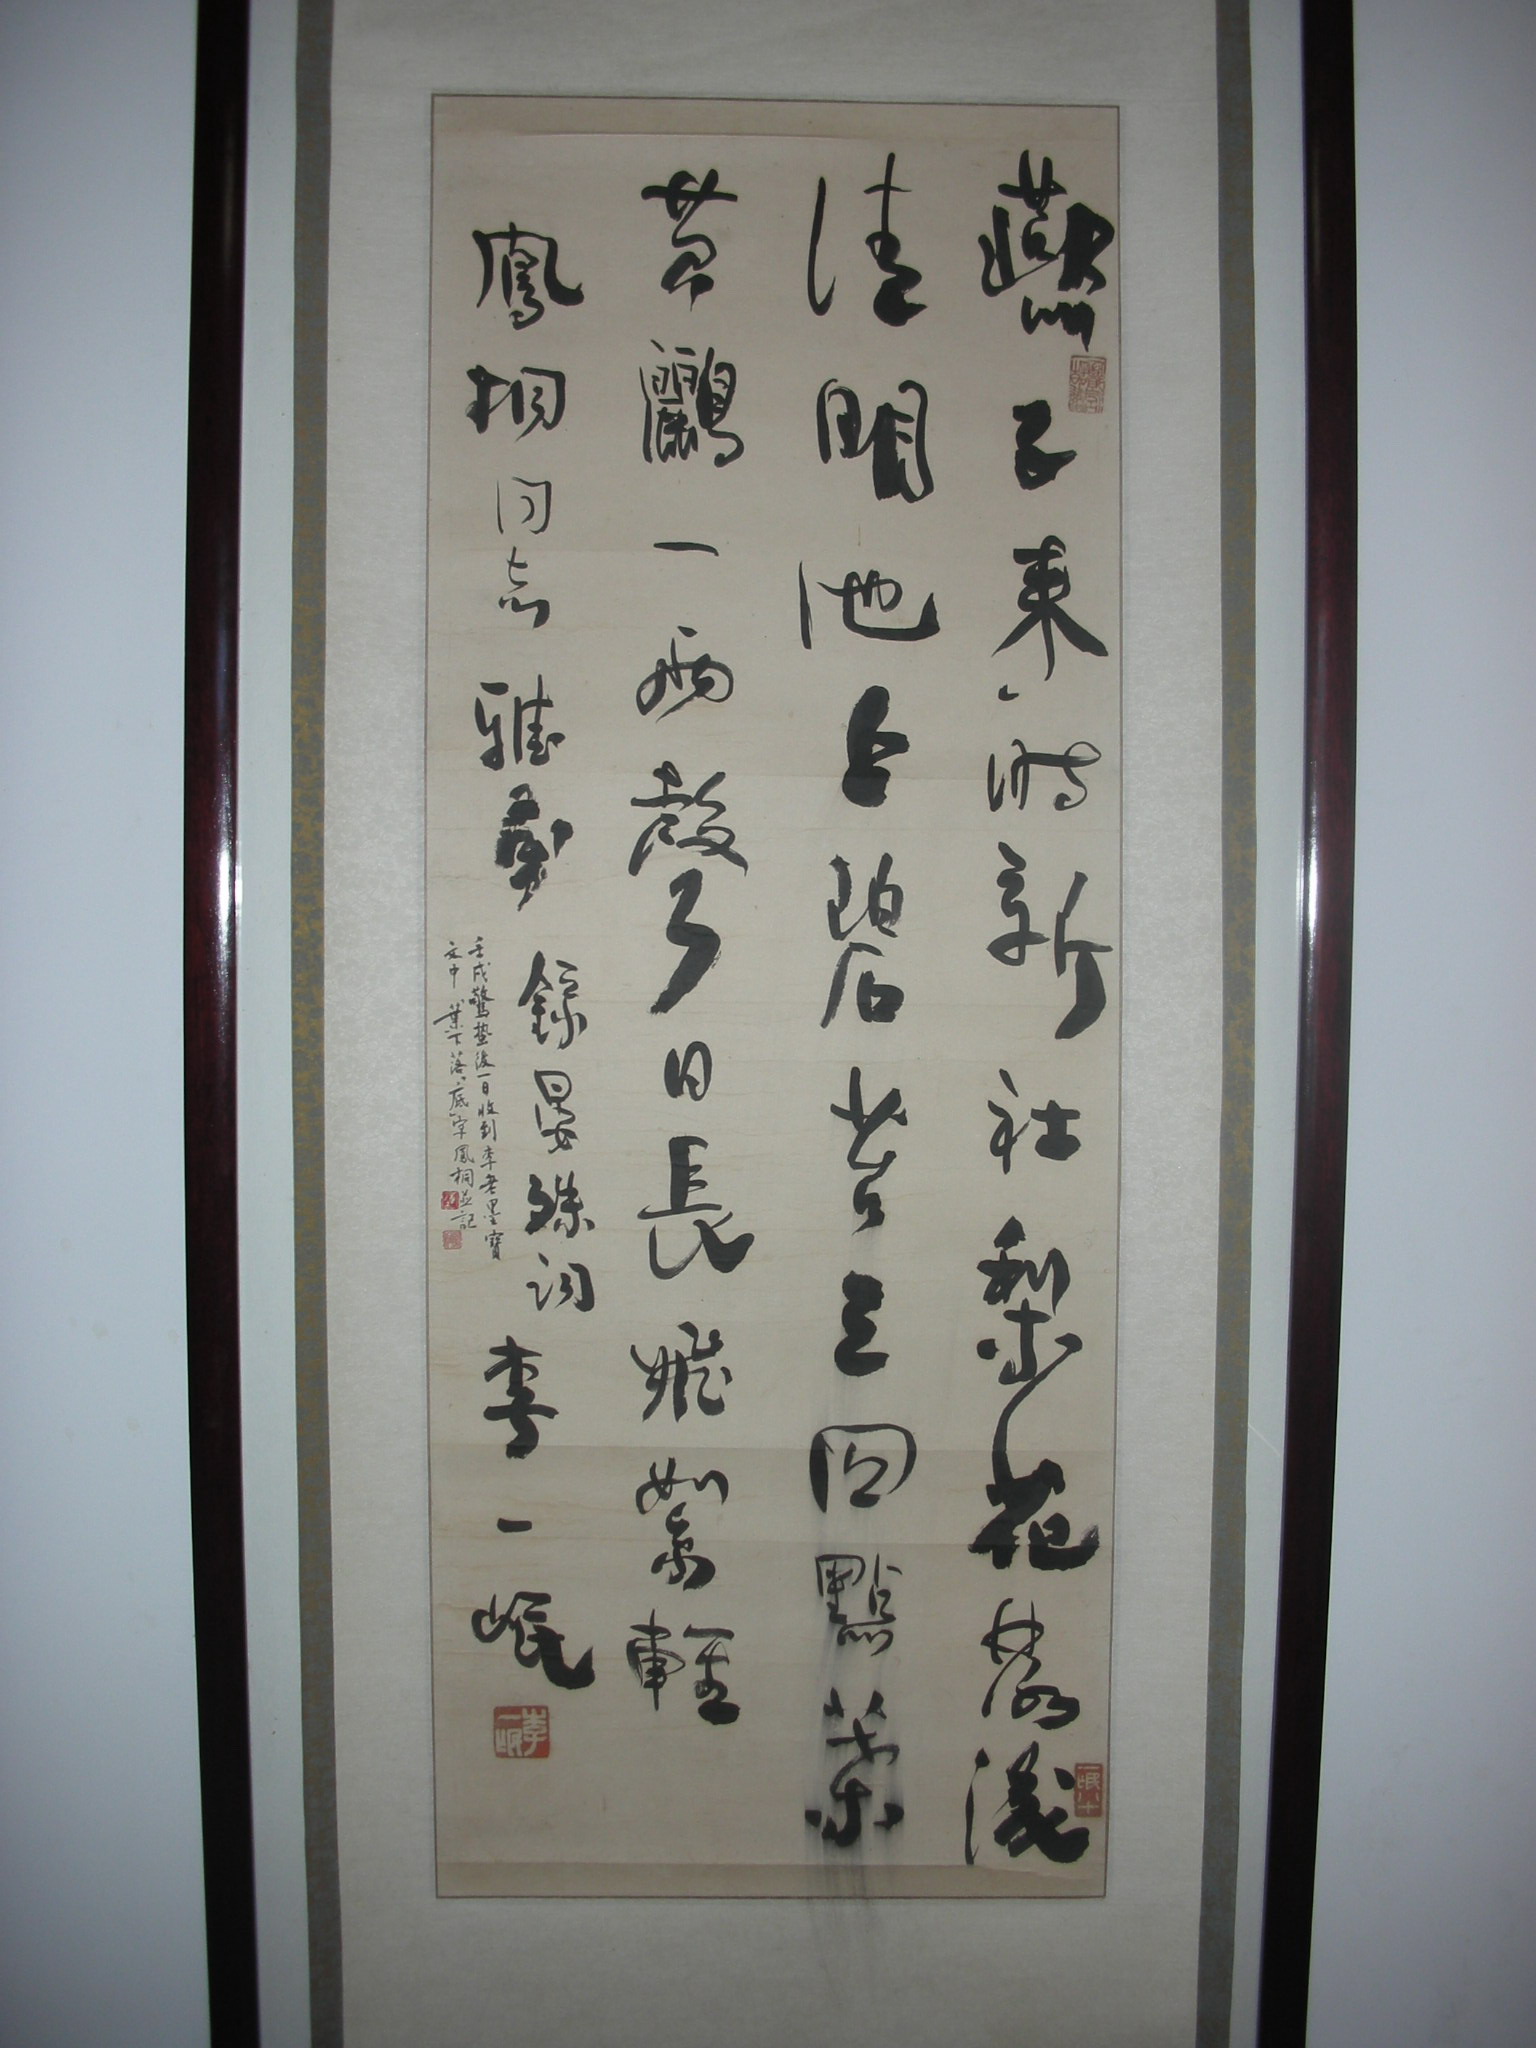 燕子来時新社梨花落後
清明池上碧苔三四點葉
底黄鸝一兩聲日長飛絮輕
鳳桐同志雅教 録晏殊詞 李一氓
壬戌驚蟄後一日收到李老墨寶
文中葉下落底字鳳桐並記
李一氓
一氓八十